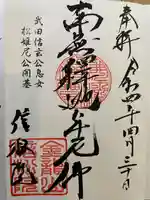 奉拝 令和四年四月三十日
南無釋迦牟尼仏
武田信玄公息女
松姫尼公開基
信松院